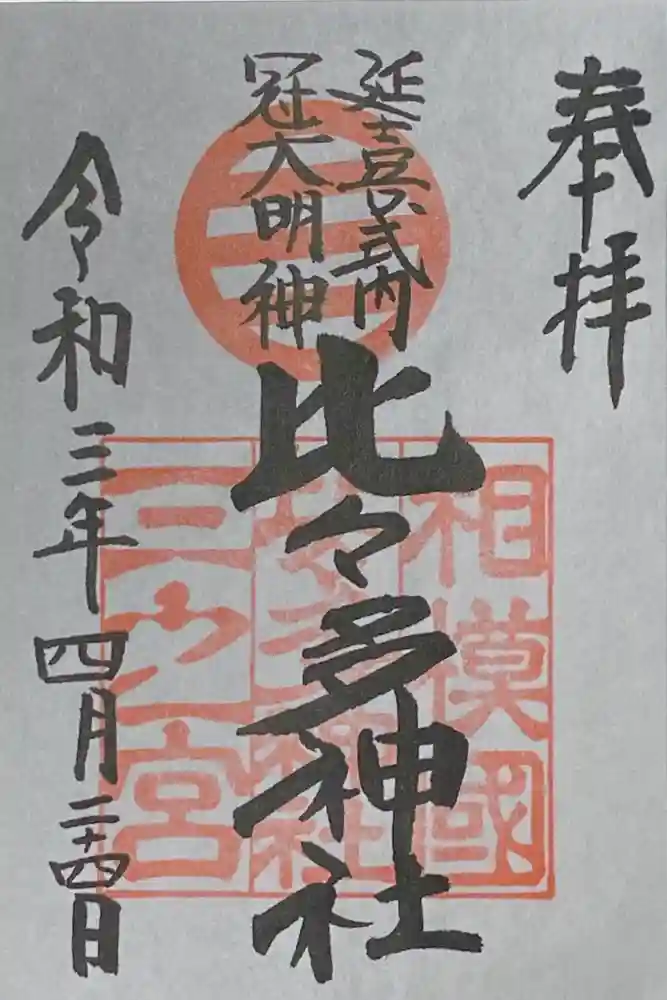 奉拝
延喜式内
冠大明神
比々多神社
相模國
比々多神社
三之宮
令和三年四月二十四日